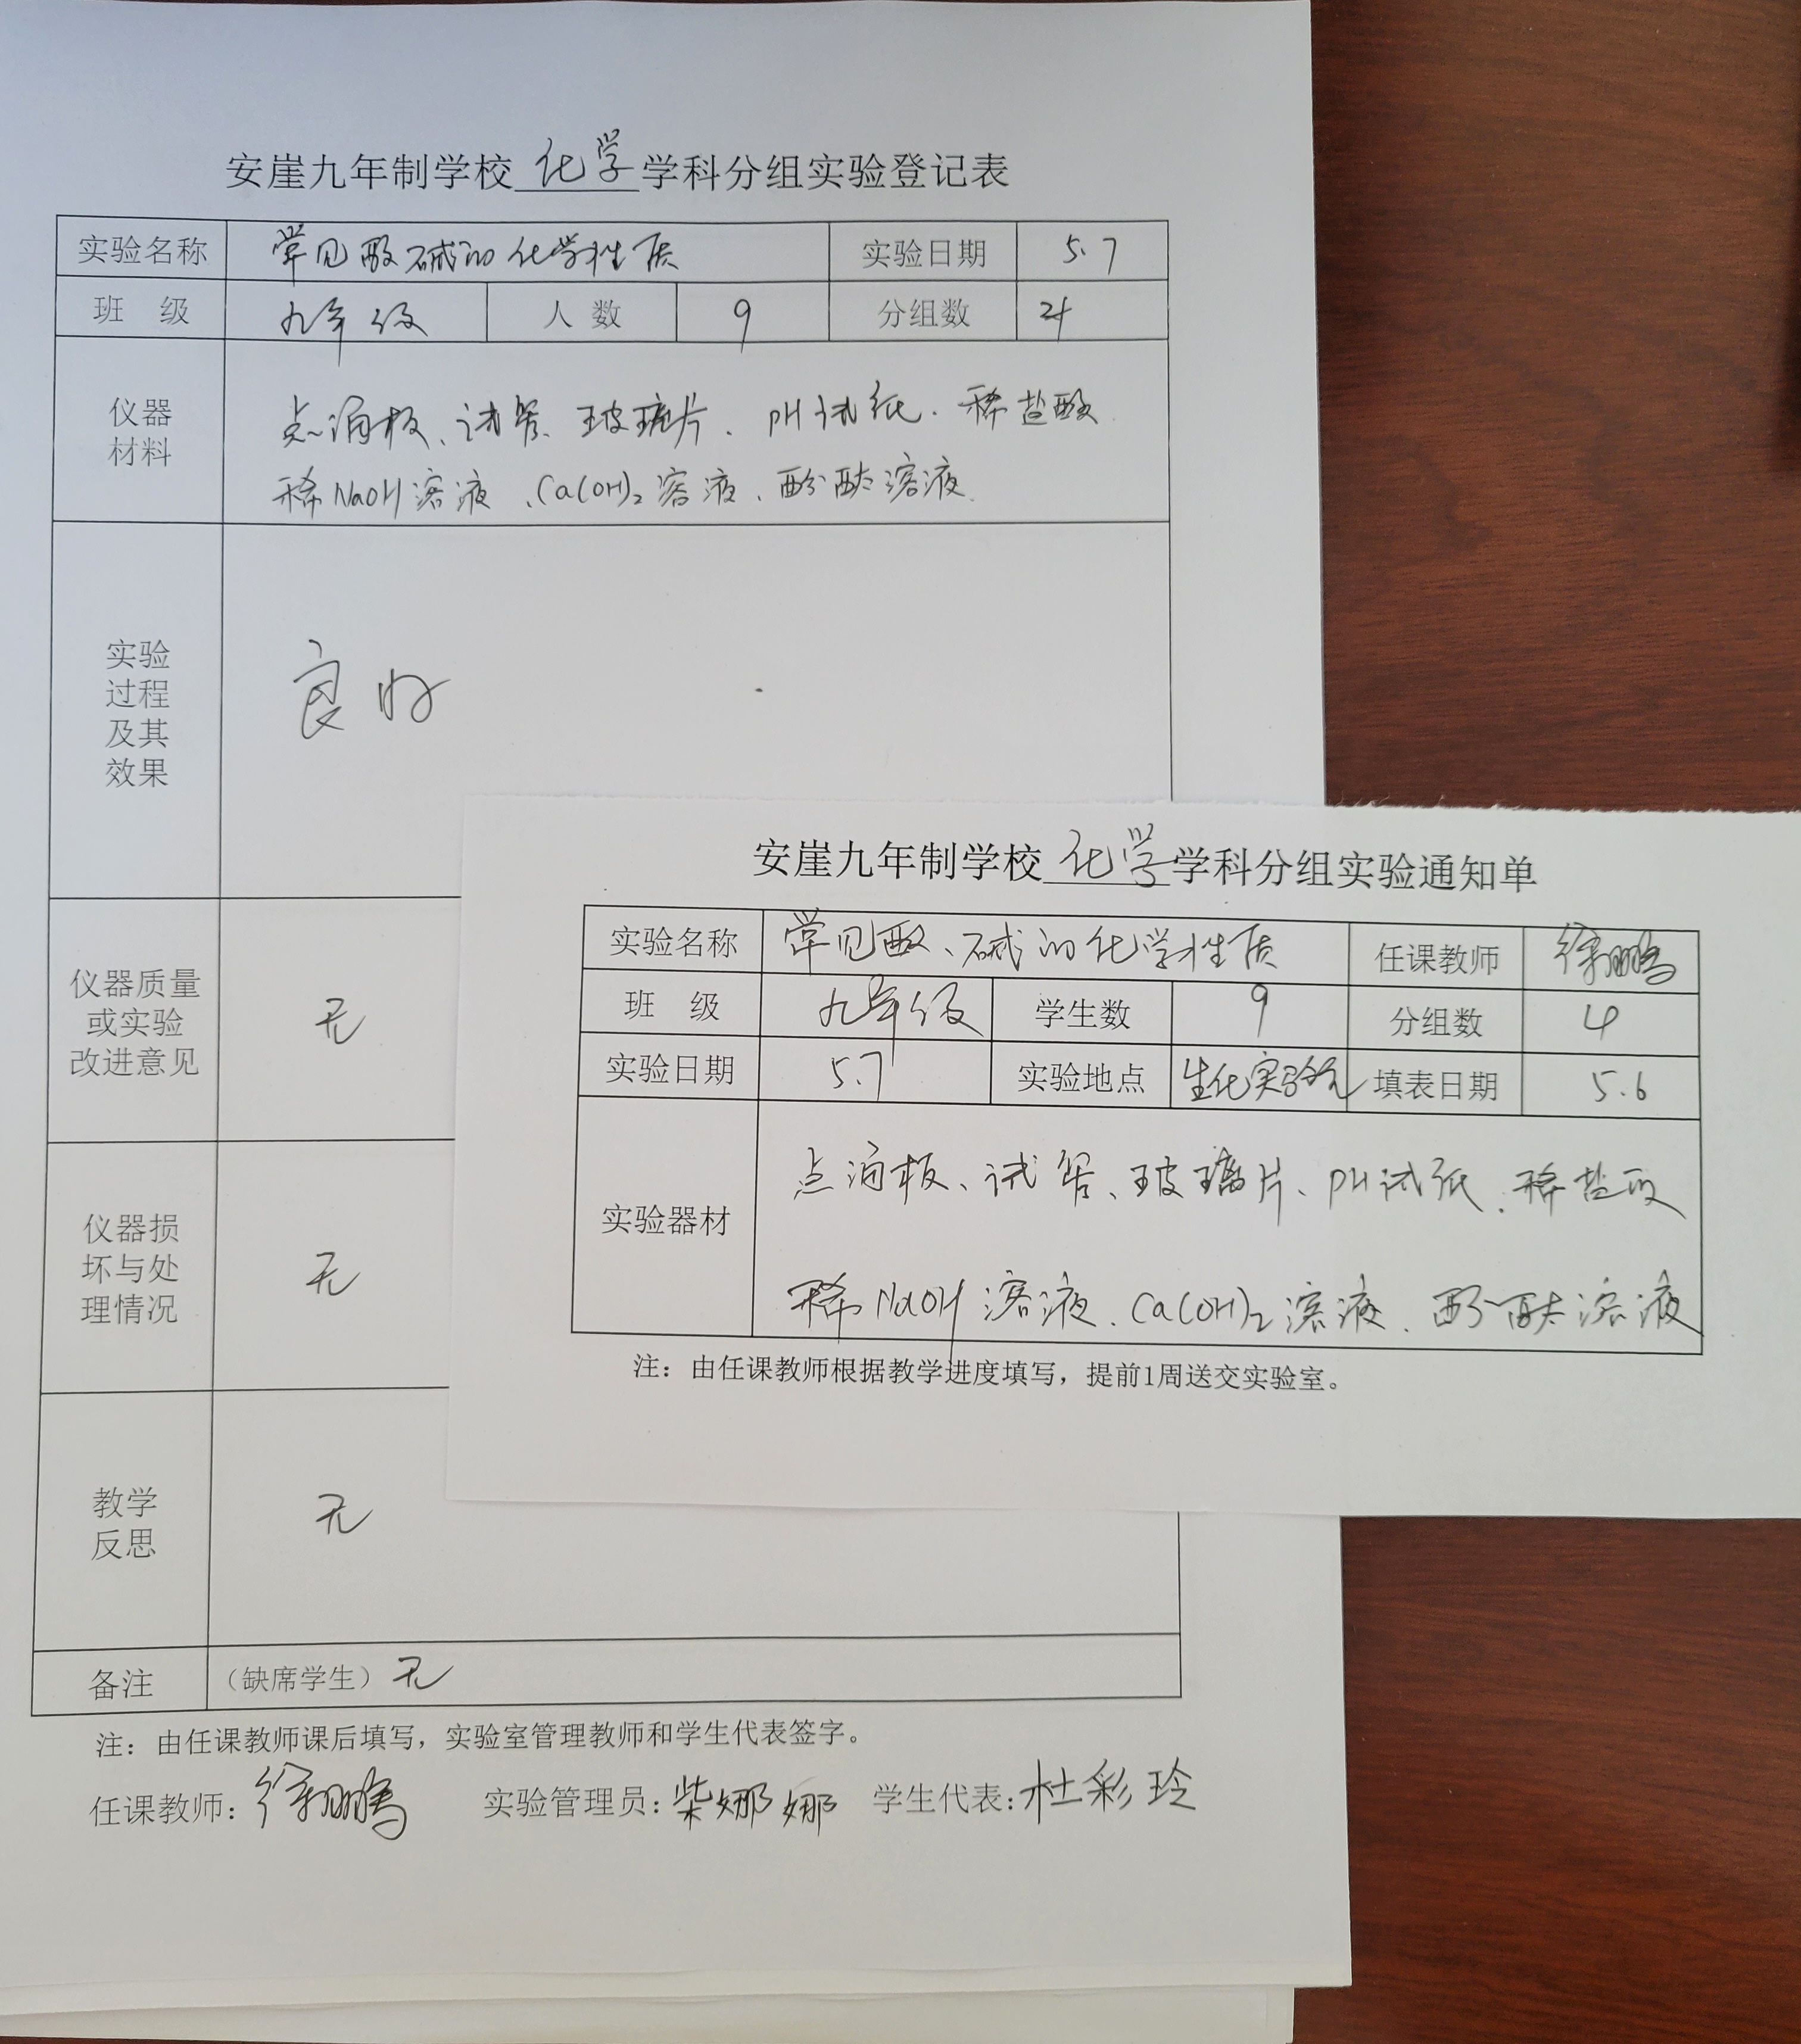 安崖九年制学校 化学 学科分组实验登记表
实验名称 常见酸碱的化学性质 实验日期 5.7
班 级 九年级 人 数 9 分组数 4
仪器
材料
点滴板、试管、玻璃片、pH试纸、稀盐酸
稀NaOH溶液、Ca(OH)2溶液、酚酞溶液
实验
过程
及其
效果
良好
仪器质量
或实验
改进意见
无
仪器损
坏与处
理情况
无
教学
反思
无
备注 （缺席学生）无
注：由任课教师课后填写，实验室管理教师和学生代表签字。
任课教师：徐鹏 实验管理员：柴娜娜 学生代表：杜彩玲
安崖九年制学校 化学 学科分组实验通知单
实验名称 常见酸、碱的化学性质 任课教师 徐鹏
班 级 九年级 学生数 9 分组数 4
实验日期 5.7 实验地点 生化实验室 填表日期 5.6
实验器材
点滴板、试管、玻璃片、PH试纸、稀盐酸
稀NaOH溶液、Ca(OH)2溶液、酚酞溶液
注：由任课教师根据教学进度填写，提前1周送交实验室。